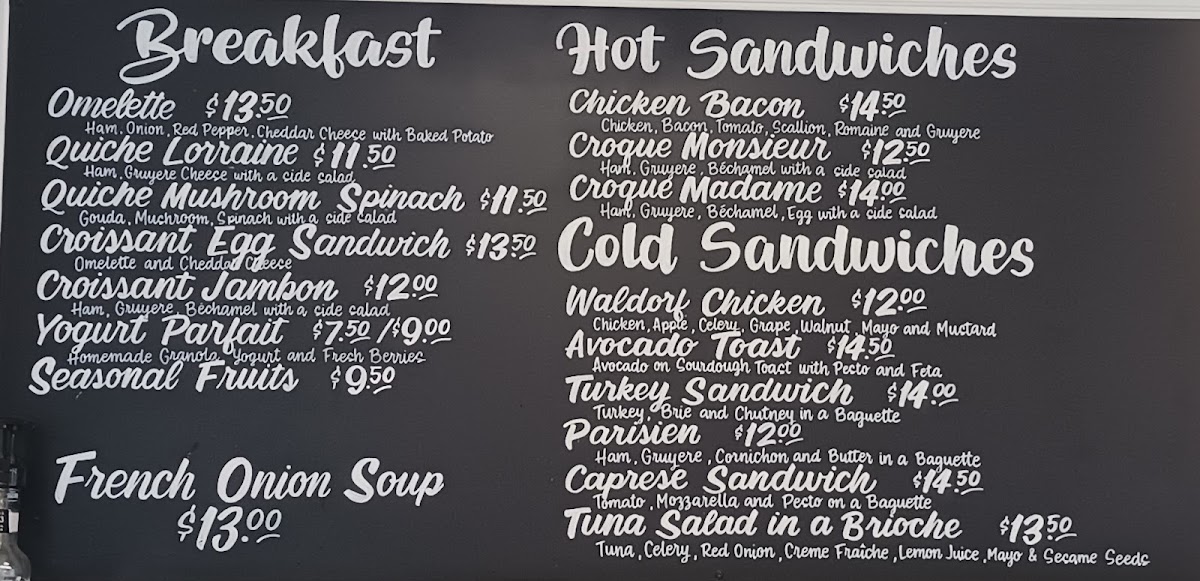 Breakfast
Omelette $13.50
Ham, Onion, Red Pepper, Cheddar Cheese with Baked Potato
Quiche Lorraine $11.50
Ham, Gruyere Cheese with a side salad
Quiche Mushroom Spinach $11.50
Gouda, Mushroom, Spinach with a side salad
Croissant Egg Sandwich $13.50
Omelette and Cheddar Cheese
Croissant Jambon $12.00
Ham, Gruyere, Béchamel with a side salad
Yogurt Parfait $7.50 /$9.00
Homemade Granola, Yogurt and Fresh Berries
Seasonal Fruits $9.50
French Onion Soup
$13.00
Hot Sandwiches
Chicken Bacon $14.50
Chicken, Bacon, Tomato, Scallion, Romaine and Gruyere
Croque Monsieur $12.50
Ham, Gruyere, Béchamel with a side salad
Croque Madame $14.00
Ham, Gruyere, Béchamel, Egg with a side salad
Cold Sandwiches
Waldorf Chicken $12.00
Chicken, Apple, Celery, Grape, Walnut, Mayo and Mustard
Avocado Toast $14.50
Avocado on Sourdough Toast with Pesto and Feta
Turkey Sandwich $14.00
Turkey, Brie and Chutney in a Baguette
Parisien $12.00
Ham, Gruyere, Cornichon and Butter in a Baguette
Caprese Sandwich $14.50
Tomato, Mozzarella and Pesto on a Baguette
Tuna Salad in a Brioche $13.50
Tuna, Celery, Red Onion, Creme Fraîche, Lemon Juice, Mayo & Sesame Seeds